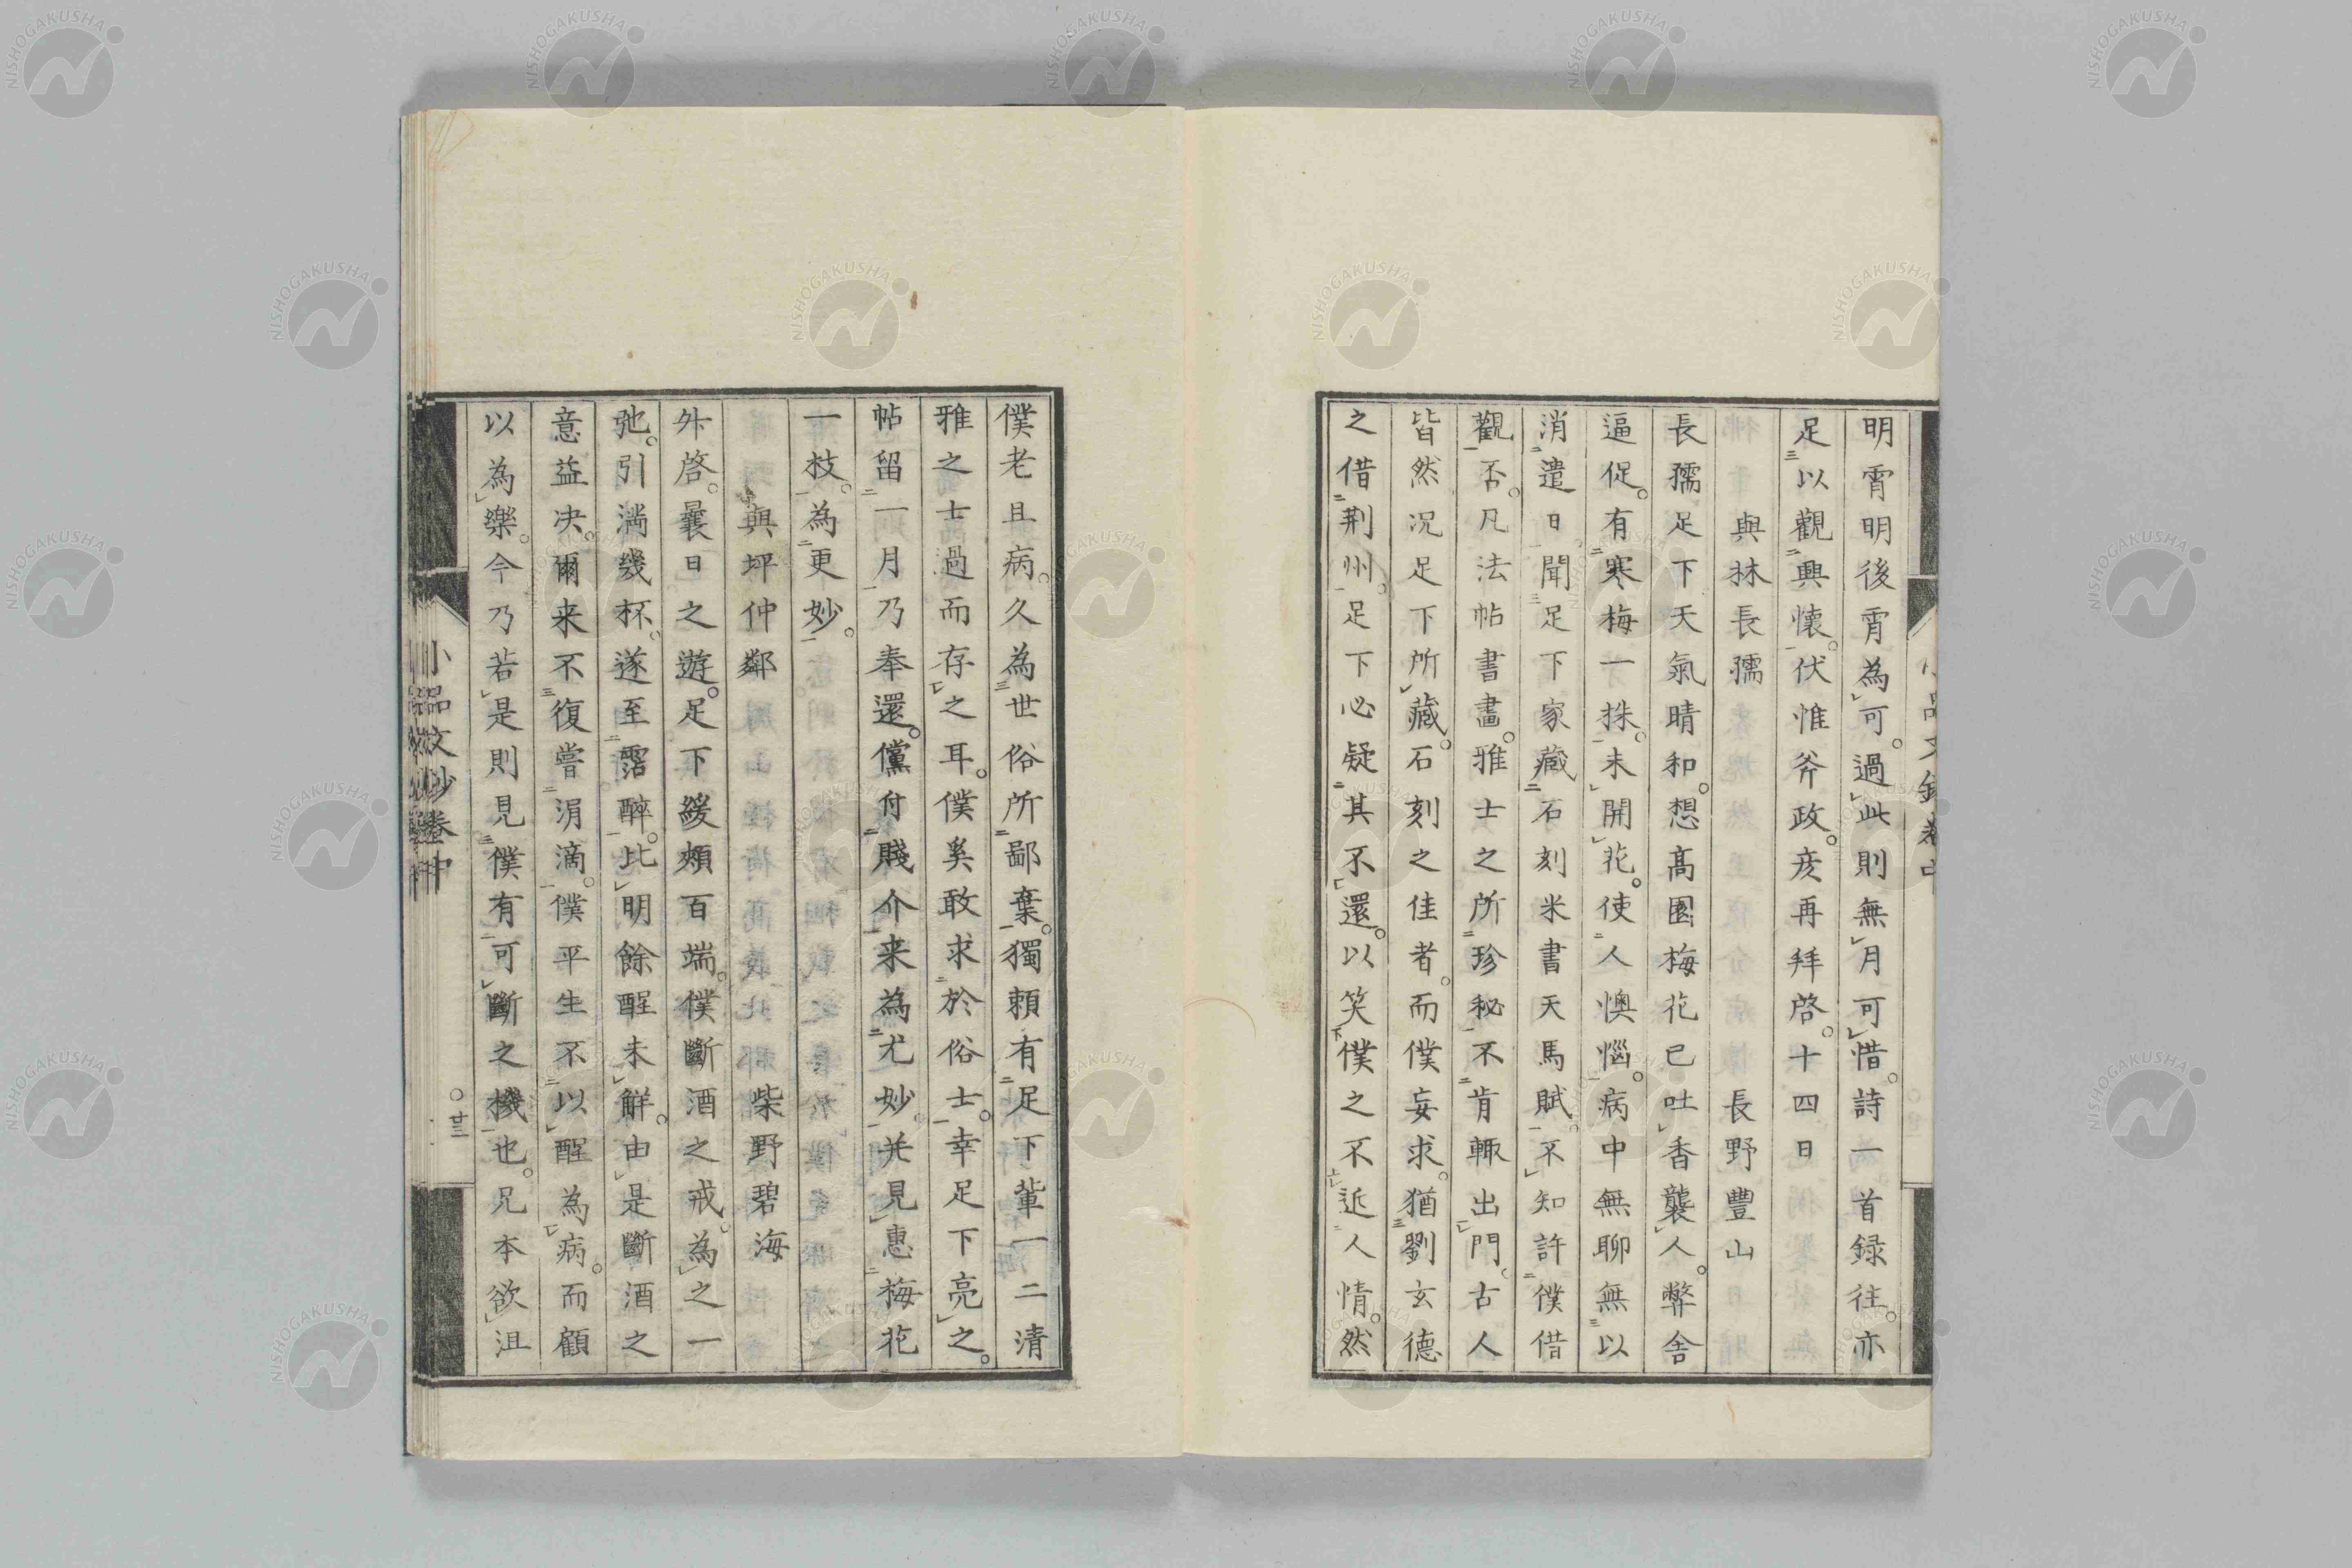 明霄明後霄為可。過此則無月可惜。詩一首録往。亦
足以觀興懷。伏惟斧政。彦再拜啓。十四日
與林長孺 長野豐山
長孺足下天氣晴和。想髙園梅花已吐香襲人。弊舎
逼促。有寒梅一株。未開花。使人懊惱。病中無聊無以
消遣日聞足下家藏石刻米書天馬賦。不知許僕借
觀否。凡法帖書畵。雅士之所珍秘不肯輙出門。古人
皆然况足下所藏。石刻之佳者。而僕妄求。猶劉玄德
之借荆州。足下必疑其不還。以笑僕之不近人情。然
僕老且病。久為世俗所鄙棄。獨頼有足下輩一二清
雅之士過而存之耳。僕奚敢求於俗士。幸足下亮之。
帖留一月乃奉還。儻付賤介来為尤妙。并見惠梅花
一枝。為更妙。
與坪仲鄰 柴野碧海
外啓。曩日之遊。足下緩頰百端。僕斷酒之戒。為之一
弛。引満幾杯。遂至霑醉。比明餘酲未解。由是斷酒之
意益决。爾来不復嘗涓滴。僕平生不以醒為病。而顧
以為樂。今乃若是則見僕有可斷之機也。兄本欲沮
小品文鈔卷中
廿三
NISHOGAKUSHA